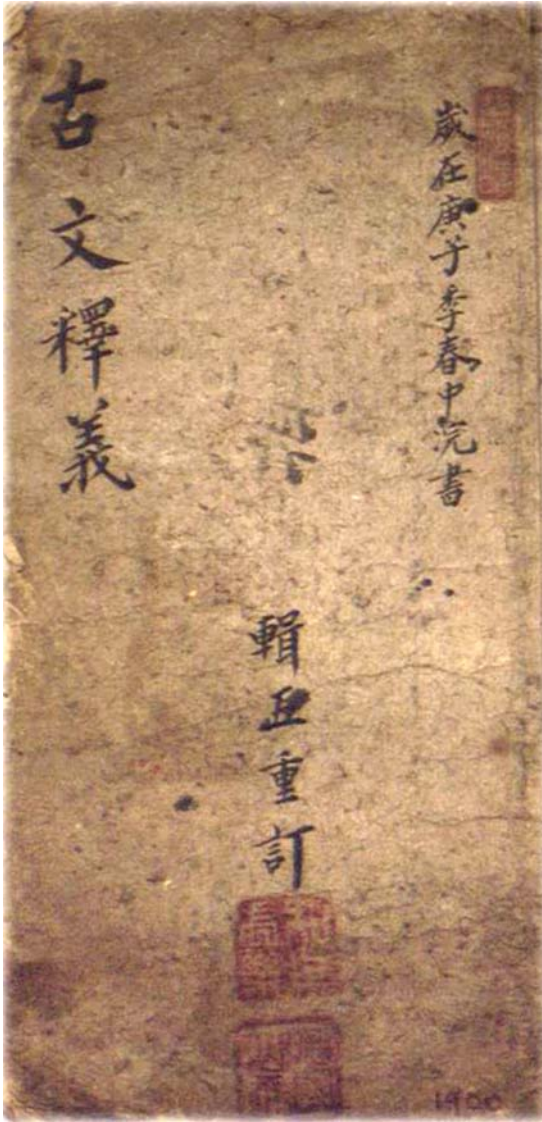 歲在庚子季春中浣書
輯五重訂
古文釋義
1900